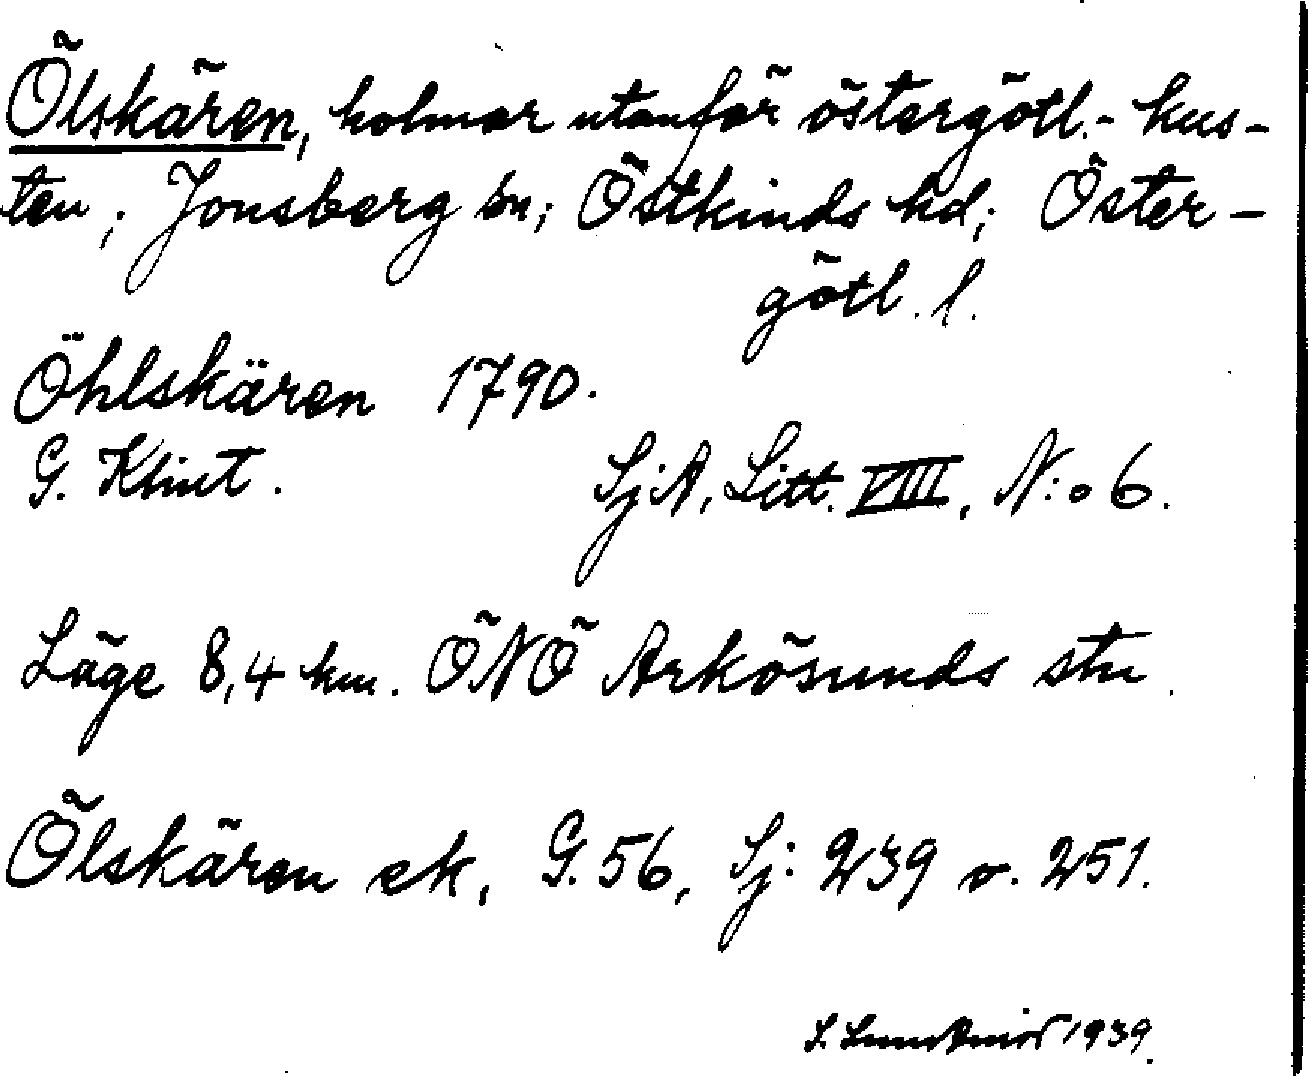 Ölskären, holmar utanför östergötl.- kus-
ten; Jonsberg sn; Östkinds hd; Öster-
götl. l.
Öhlskären 1790.
G. Klint. SjA, Litt. VIII, N:o 6.
Läge 8,4 km. ÖNÖ Arkösunds stn.
Ölskären ek, G. 56, Sj: 239 o. 251.
1939.